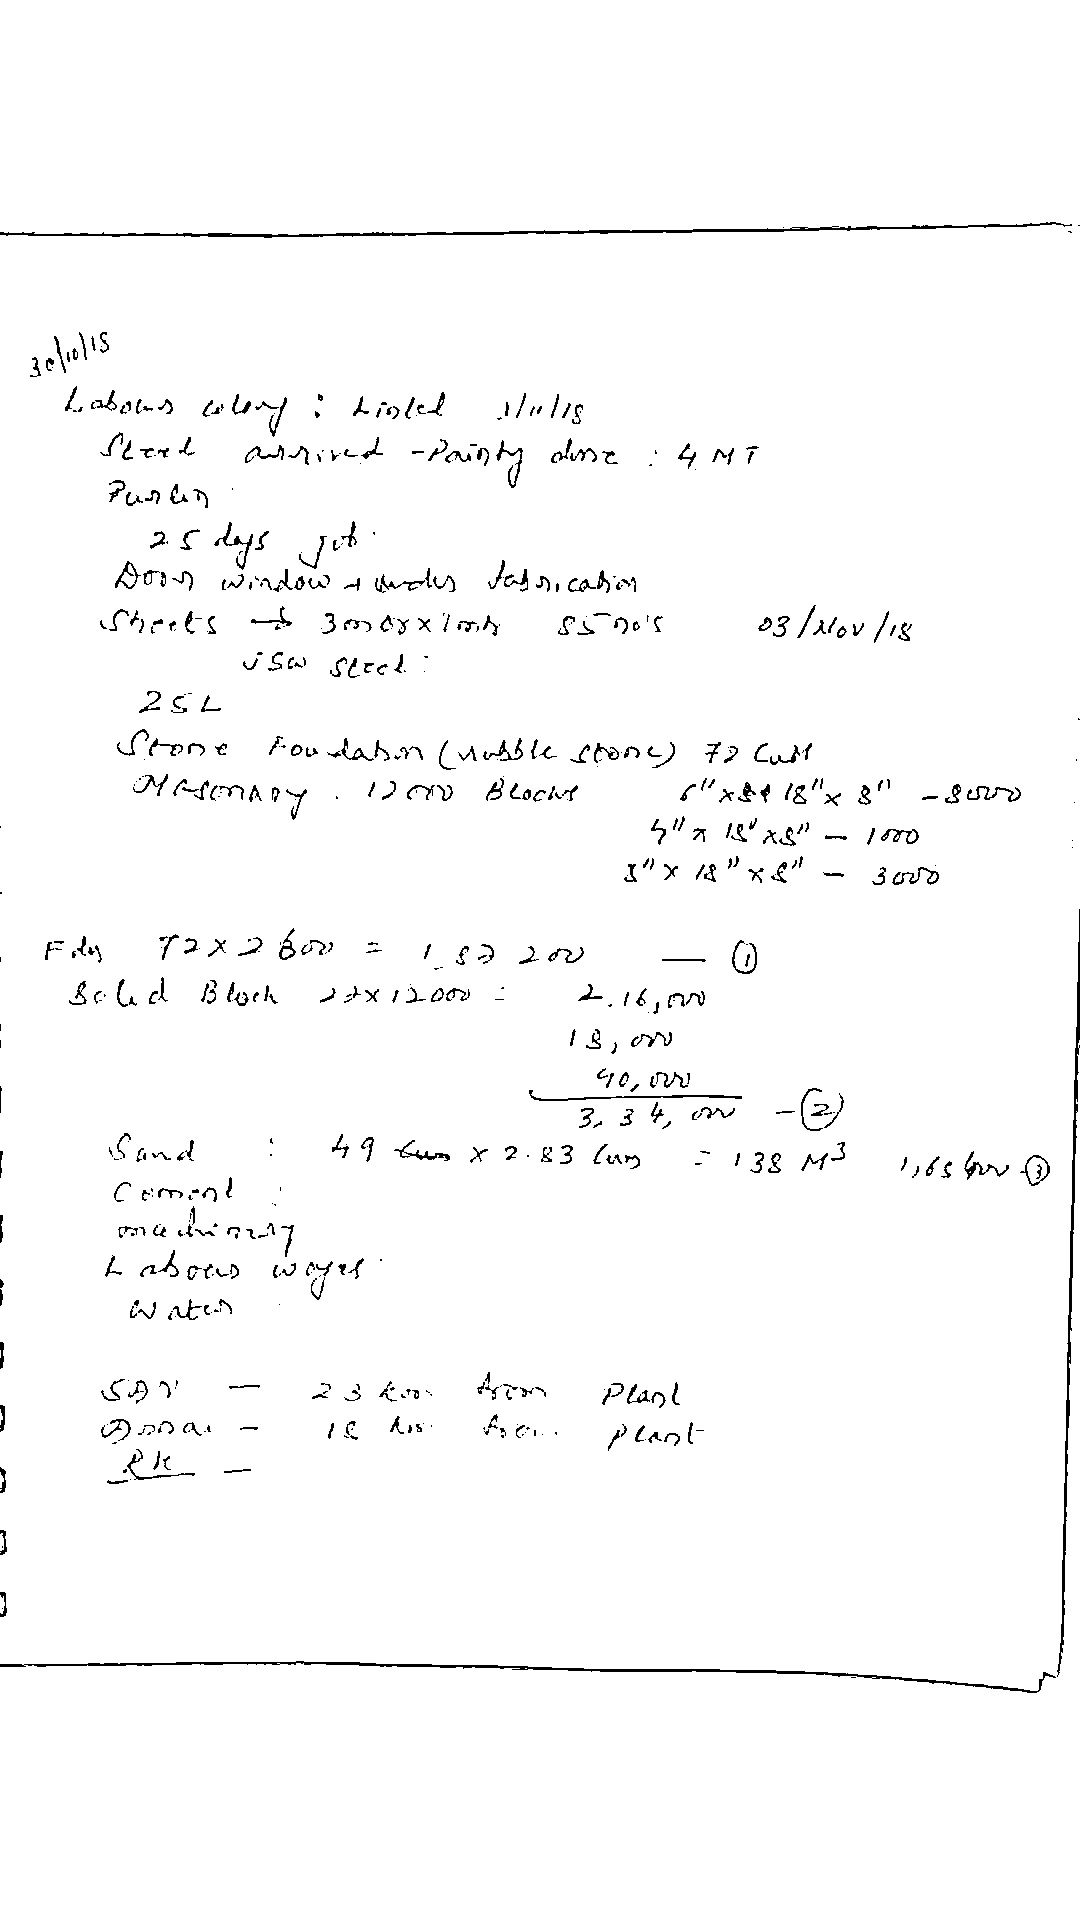 30/10/18
Labour colony : Lintel 1/11/18
Steel arrived - Painty done : 4 MT
Purlin
25 days job
Door window under fabrication
Sheets → 3mtr x 1mtr 85 no's 03/Nov/18
JSW Steel :
25L
Stone Foundation (rubble stone) 72 CuM
Masonary . 12000 Blocks 6" x 18" x 8" - 8000
4" x 18" x 8" - 1000
8" x 18" x 8" - 3000
Fdn 72 x 2600 = 1,87 200 — ①
Solid Block 27x12000 = 2,16,000
18,000
90,000
3,34,000 - ②
Sand : 49 x 2.83 Cum = 138 M3 1,65 000 - ③
Cement :
machinary
Labour wages
Water
— 23 km from Plant
— 18 km from Plant
RK —